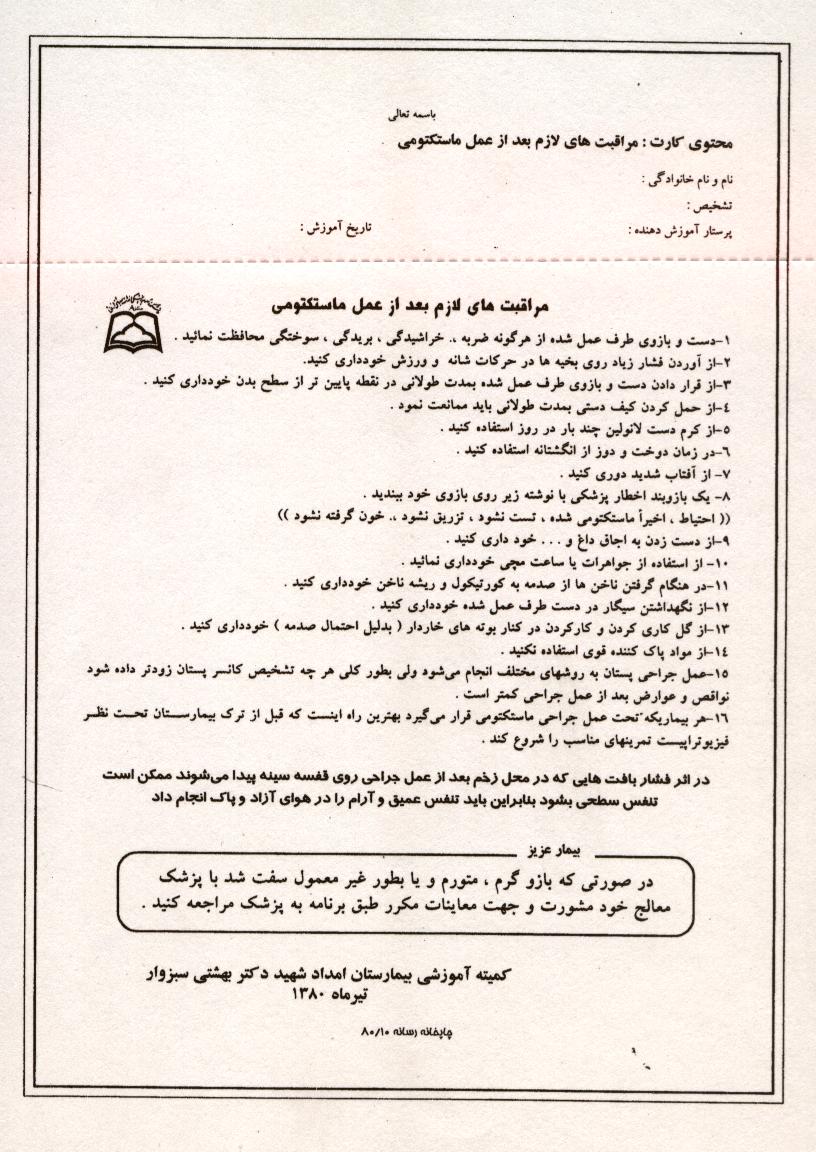 باسمه تعالی
محتوی کارت : مراقبت های لازم بعد از عمل ماستکتومی
نام و نام خانوادگی :
تشخیص :
پرستار آموزش دهنده : تاریخ آموزش :
مراقبت های لازم بعد از عمل ماستکتومی
۱-دست و بازوی طرف عمل شده از هرگونه ضربه ،. خراشیدگی ، بریدگی ، سوختگی محافظت نمائید .
۲-از آوردن فشار زیاد روی بخیه ها در حرکات شانه و ورزش خودداری کنید.
۳-از قرار دادن دست و بازوی طرف عمل شده بمدت طولانی در نقطه پایین تر از سطح بدن خودداری کنید .
۴-از حمل کردن کیف دستی بمدت طولانی باید ممانعت نمود .
۵-از کرم دست لانولین چند بار در روز استفاده کنید .
۶-در زمان دوخت و دوز از انگشتانه استفاده کنید .
۷- از آفتاب شدید دوری کنید .
۸- یک بازوبند اخطار پزشکی با نوشته زیر روی بازوی خود ببندید .
(( احتیاط ، اخیراً ماستکتومی شده ، تست نشود ، تزریق نشود ،. خون گرفته نشود ))
۹-از دست زدن به اجاق داغ و . . . خود داری کنید .
۱۰- از استفاده از جواهرات یا ساعت مچی خودداری نمائید .
۱۱-در هنگام گرفتن ناخن ها از صدمه به کورتیکول و ریشه ناخن خودداری کنید .
۱۲-از نگهداشتن سیگار در دست طرف عمل شده خودداری کنید .
۱۳-از گل کاری کردن و کارکردن در کنار بوته های خاردار ( بدلیل احتمال صدمه ) خودداری کنید .
۱۴-از مواد پاک کننده قوی استفاده نکنید .
۱۵-عمل جراحی پستان به روشهای مختلف انجام می‌شود ولی بطور کلی هر چه تشخیص کانسر پستان زودتر داده شود
نواقص و عوارض بعد از عمل جراحی کمتر است .
۱۶-هر بیماریکه تحت عمل جراحی ماستکتومی قرار می‌گیرد بهترین راه اینست که قبل از ترک بیمارستان تحت نظر
فیزیوتراپیست تمرینهای مناسب را شروع کند .
در اثر فشار بافت هایی که در محل زخم بعد از عمل جراحی روی قفسه سینه پیدا می‌شوند ممکن است
تنفس سطحی بشود بنابراین باید تنفس عمیق و آرام را در هوای آزاد و پاک انجام داد
بیمار عزیز
در صورتی که بازو گرم ، متورم و یا بطور غیر معمول سفت شد با پزشک
معالج خود مشورت و جهت معاینات مکرر طبق برنامه به پزشک مراجعه کنید .
کمیته آموزشی بیمارستان امداد شهید دکتر بهشتی سبزوار
تیرماه ۱۳۸۰
چاپخانه رسانه ۸۰/۱۰